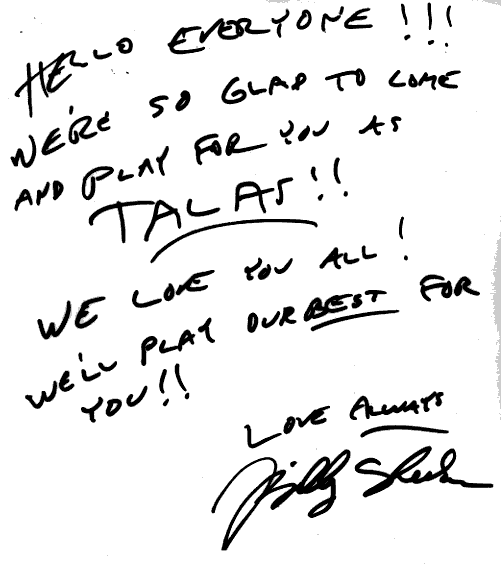 HELLO EVERYONE!!!
WE'RE SO GLAD TO COME
AND PLAY FOR YOU AS
TALAS!!
WE LOVE YOU ALL!
WE'LL PLAY OUR BEST FOR
YOU!!
LOVE ALWAYS
Billy Sheehan